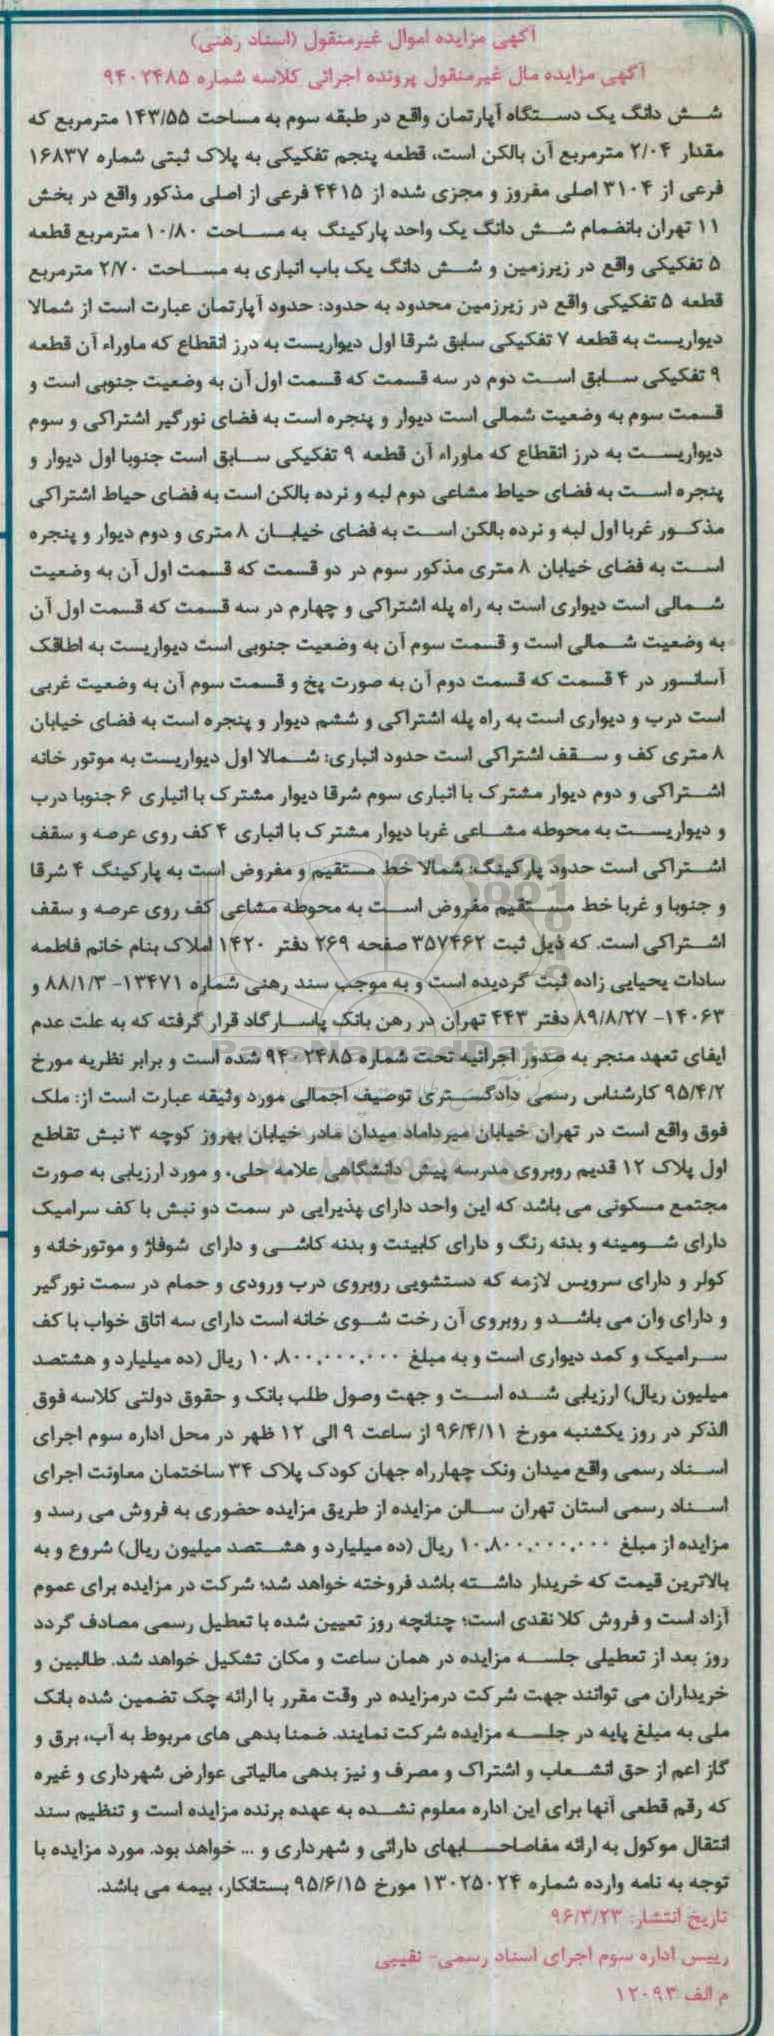 آگهی مزایده اموال غیرمنقول (اسناد رهنی)
آگهی مزایده مال غیرمنقول پرونده اجرائی کلاسه شماره ۹۴۰۲۴۸۵
شش دانگ یک دستگاه آپارتمان واقع در طبقه سوم به مساحت ۱۴۳/۵۵ مترمربع که
مقدار ۲/۰۴ مترمربع آن بالکن است، قطعه پنجم تفکیکی به پلاک ثبتی شماره ۱۶۸۳۷
فرعی از ۳۱۰۴ اصلی مفروز و مجزی شده از ۴۴۱۵ فرعی از اصلی مذکور واقع در بخش
۱۱ تهران بانضمام شش دانگ یک واحد پارکینگ به مساحت ۱۰/۸۰ مترمربع قطعه
۵ تفکیکی واقع در زیرزمین و شش دانگ یک باب انباری به مساحت ۲/۷۰ مترمربع
قطعه ۵ تفکیکی واقع در زیرزمین محدود به حدود: حدود آپارتمان عبارت است از شمالا
دیواریست به قطعه ۷ تفکیکی سابق شرقا اول دیواریست به درز انقطاع که ماوراء آن قطعه
۹ تفکیکی سابق است دوم در سه قسمت که قسمت اول آن به وضعیت جنوبی است و
قسمت سوم به وضعیت شمالی است دیوار و پنجره است به فضای نورگیر اشتراکی و سوم
دیواریست به درز انقطاع که ماوراء آن قطعه ۹ تفکیکی سابق است جنوبا اول دیوار و
پنجره است به فضای حیاط مشاعی دوم لبه و نرده بالکن است به فضای حیاط اشتراکی
مذکور غربا اول لبه و نرده بالکن است به فضای خیابان ۸ متری و دوم دیوار و پنجره
است به فضای خیابان ۸ متری مذکور سوم در دو قسمت که قسمت اول آن به وضعیت
شمالی است دیواری است به راه پله اشتراکی و چهارم در سه قسمت که قسمت اول آن
به وضعیت شمالی است و قسمت سوم آن به وضعیت جنوبی است دیواریست به اطاقک
آسانسور در ۴ قسمت که قسمت دوم آن به صورت پخ و قسمت سوم آن به وضعیت غربی
است درب و دیواری است به راه پله اشتراکی و ششم دیوار و پنجره است به فضای خیابان
۸ متری کف و سقف اشتراکی است حدود انباری: شمالا اول دیواریست به موتور خانه
اشتراکی و دوم دیوار مشترک با انباری سوم شرقا دیوار مشترک با انباری ۶ جنوبا درب
و دیواریست به محوطه مشاعی غربا دیوار مشترک با انباری ۴ کف روی عرصه و سقف
اشتراکی است حدود پارکینگ: شمالا خط مستقیم و مفروض است به پارکینگ ۴ شرقا
و جنوبا و غربا خط مستقیم مفروض است به محوطه مشاعی کف روی عرصه و سقف
اشتراکی است. که ذیل ثبت ۳۵۷۴۶۲ صفحه ۲۶۹ دفتر ۱۴۲۰ املاک بنام خانم فاطمه
سادات یحیایی زاده ثبت گردیده است و به موجب سند رهنی شماره ۱۳۴۷۱- ۸۸/۱/۳ و
۱۴۰۶۳- ۸۹/۸/۲۷ دفتر ۴۴۳ تهران در رهن بانک پاسارگاد قرار گرفته که به علت عدم
ایفای تعهد منجر به صدور اجرائیه تحت شماره ۹۴۰۲۴۸۵ شده است و برابر نظریه مورخ
۹۵/۴/۲ کارشناس رسمی دادگستری توصیف اجمالی مورد وثیقه عبارت است از: ملک
فوق واقع است در تهران خیابان میرداماد میدان مادر خیابان بهروز کوچه ۳ نبش تقاطع
اول پلاک ۱۲ قدیم روبروی مدرسه پیش دانشگاهی علامه حلی، و مورد ارزیابی به صورت
مجتمع مسکونی می باشد که این واحد دارای پذیرایی در سمت دو نبش با کف سرامیک
دارای شومینه و بدنه رنگ و دارای کابینت و بدنه کاشی و دارای شوفاژ و موتورخانه و
کولر و دارای سرویس لازمه که دستشویی روبروی درب ورودی و حمام در سمت نورگیر
و دارای وان می باشد و روبروی آن رخت شوی خانه است دارای سه اتاق خواب با کف
سرامیک و کمد دیواری است و به مبلغ ۱۰,۸۰۰,۰۰۰,۰۰۰ ریال (ده میلیارد و هشتصد
میلیون ریال) ارزیابی شده است و جهت وصول طلب بانک و حقوق دولتی کلاسه فوق
الذکر در روز یکشنبه مورخ ۹۶/۴/۱۱ از ساعت ۹ الی ۱۲ ظهر در محل اداره سوم اجرای
اسناد رسمی واقع میدان ونک چهارراه جهان کودک پلاک ۳۴ ساختمان معاونت اجرای
اسناد رسمی استان تهران سالن مزایده از طریق مزایده حضوری به فروش می رسد و
مزایده از مبلغ ۱۰,۸۰۰,۰۰۰,۰۰۰ ریال (ده میلیارد و هشتصد میلیون ریال) شروع و به
بالاترین قیمت که خریدار داشته باشد فروخته خواهد شد؛ شرکت در مزایده برای عموم
آزاد است و فروش کلا نقدی است؛ چنانچه روز تعیین شده با تعطیل رسمی مصادف گردد
روز بعد از تعطیلی جلسه مزایده در همان ساعت و مکان تشکیل خواهد شد. طالبین و
خریداران می توانند جهت شرکت درمزایده در وقت مقرر با ارائه چک تضمین شده بانک
ملی به مبلغ پایه در جلسه مزایده شرکت نمایند. ضمنا بدهی های مربوط به آب، برق و
گاز اعم از حق انشعاب و اشتراک و مصرف و نیز بدهی مالیاتی عوارض شهرداری و غیره
که رقم قطعی آنها برای این اداره معلوم نشده به عهده برنده مزایده است و تنظیم سند
انتقال موکول به ارائه مفاصاحسابهای دارائی و شهرداری و ... خواهد بود. مورد مزایده با
توجه به نامه وارده شماره ۱۳۰۲۵۰۲۴ مورخ ۹۵/۶/۱۵ بستانکار، بیمه می باشد.
تاریخ انتشار: ۹۶/۳/۲۳
رییس اداره سوم اجرای اسناد رسمی- نقیبی
م الف ۱۲۰۹۳
ParsNamadData